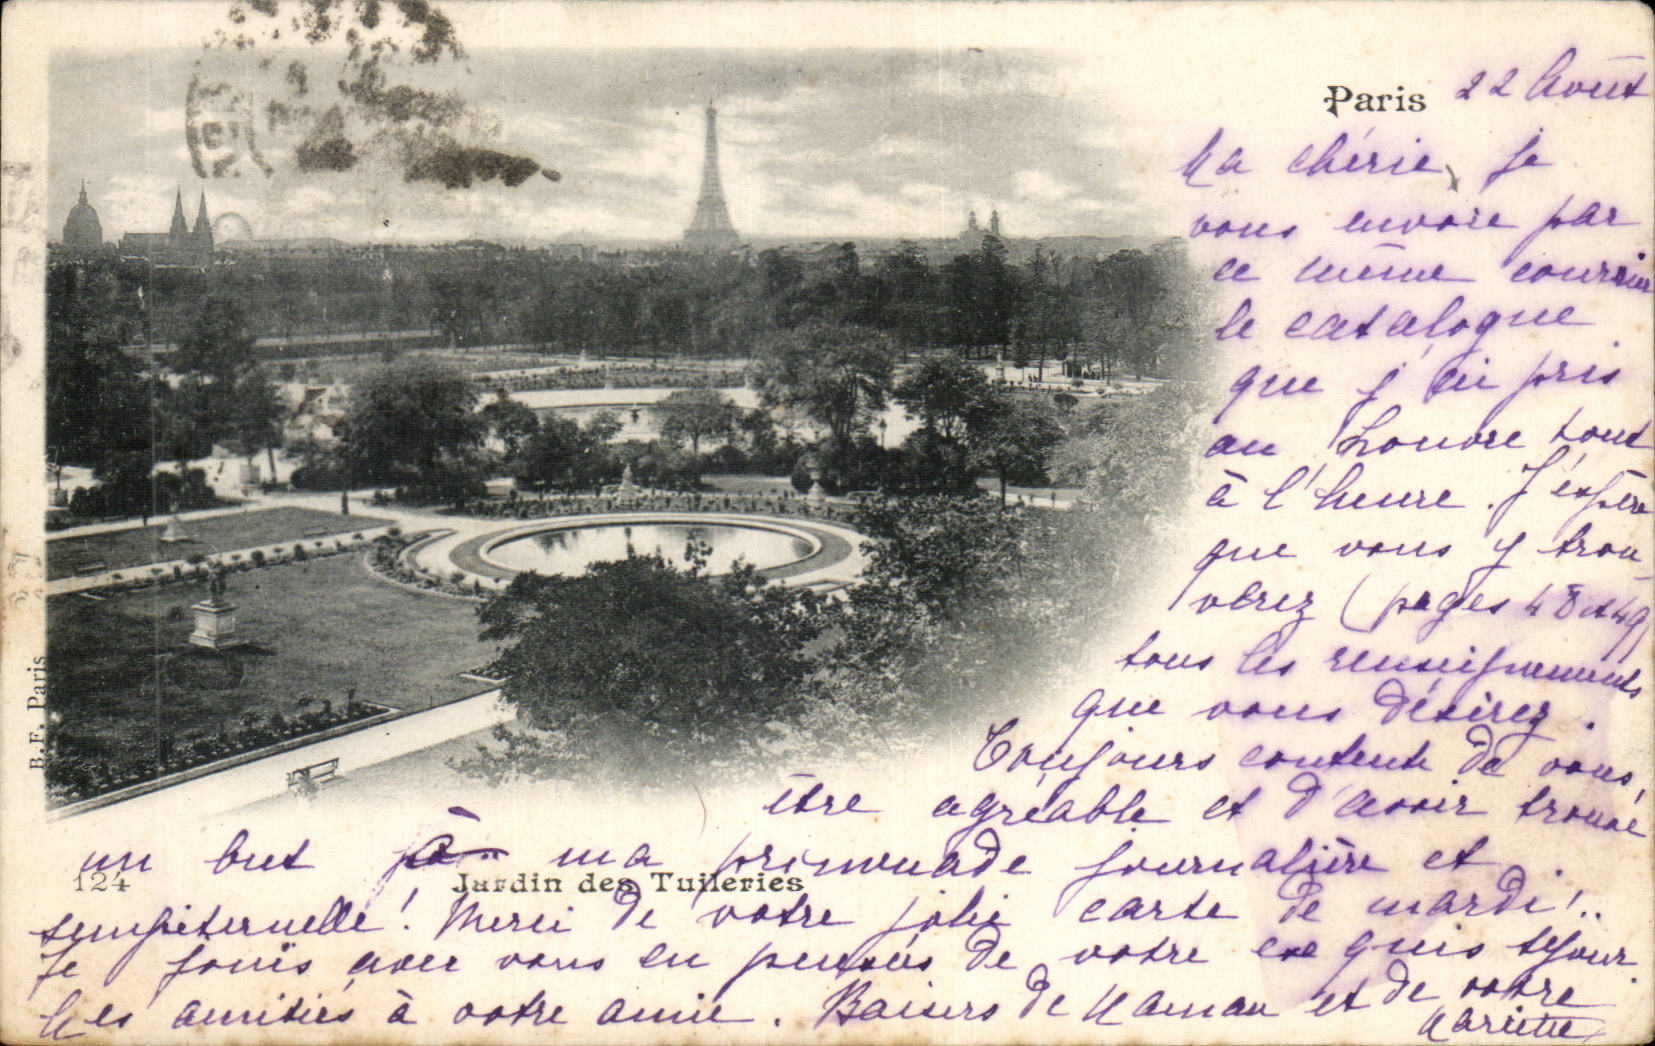 Paris 22 Août
Ma chérie, je
vous envoie par
ce même courrier
le catalogue
que j'ai pris
au Louvre tout
à l'heure. J'espère
que vous y trou-
verez (pages 48 et 49)
tous les renseignements
que vous désirez.
Toujours contente de vous
être agréable et d'avoir trouvé
un but à ma promenade journalière et
124 Jardin des Tuileries
sempiternelle! Merci de votre jolie carte de mardi!..
Je jouis avec vous en pensées de votre exquis séjour.
Mes amitiés à votre amie. Baisers de Maman et de votre
Mariette
B. F. Paris